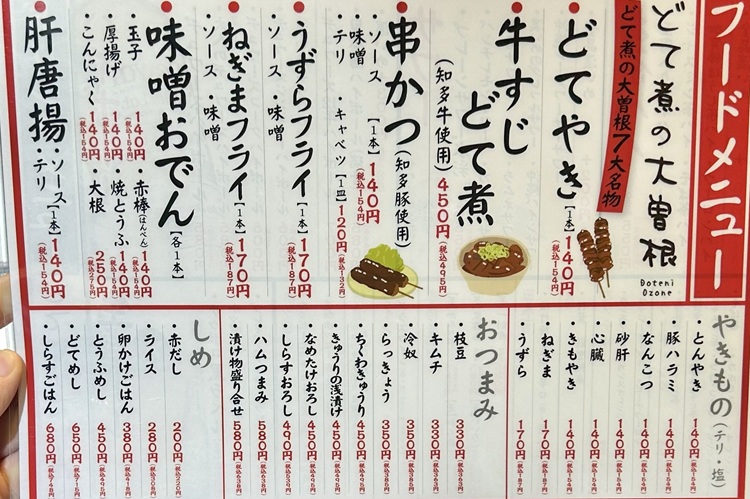 フードメニュー
どて煮の大曽根
Doteni Ozone
どて煮の大曽根7大名物
どてやき【1本】140円(税込154円)
牛すじどて煮
(知多牛使用)450円(税込495円)
串かつ(知多豚使用)
・ソース【1本】140円(税込154円)
・味噌
・テリ
・キャベツ【1皿】120円(税込132円)
・うずらフライ【1本】170円(税込187円)
・ソース ・味噌
・ねぎまフライ【1本】170円(税込187円)
・ソース ・味噌
味噌おでん【各1本】
・玉子140円(税込154円)
・厚揚げ140円(税込154円)
・こんにゃく140円(税込154円)
・赤棒(はんぺん)140円(税込154円)
・焼とうふ140円(税込154円)
・大根250円(税込275円)
・肝唐揚・ソース・テリ【1本】140円(税込154円)
やきもの(テリ・塩)
・とんやき140円(税込154円)
・豚ハラミ140円(税込154円)
・なんこつ140円(税込154円)
・砂肝140円(税込154円)
・心臓140円(税込154円)
・きもやき140円(税込154円)
・ねぎま170円(税込187円)
・うずら170円(税込187円)
おつまみ
・枝豆330円
・キムチ330円
・冷奴350円
・らっきょう350円
・ちくわきゅうり450円
・きゅうりの浅漬け450円
・なめたけおろし450円
・しらすおろし490円
・ハムつまみ580円
・漬け物盛り合せ580円
しめ
・赤だし200円(税込220円)
・ライス280円(税込308円)
・卵かけごはん380円(税込418円)
・とうふめし450円
・どてめし650円(税込715円)
・しらすごはん680円(税込748円)